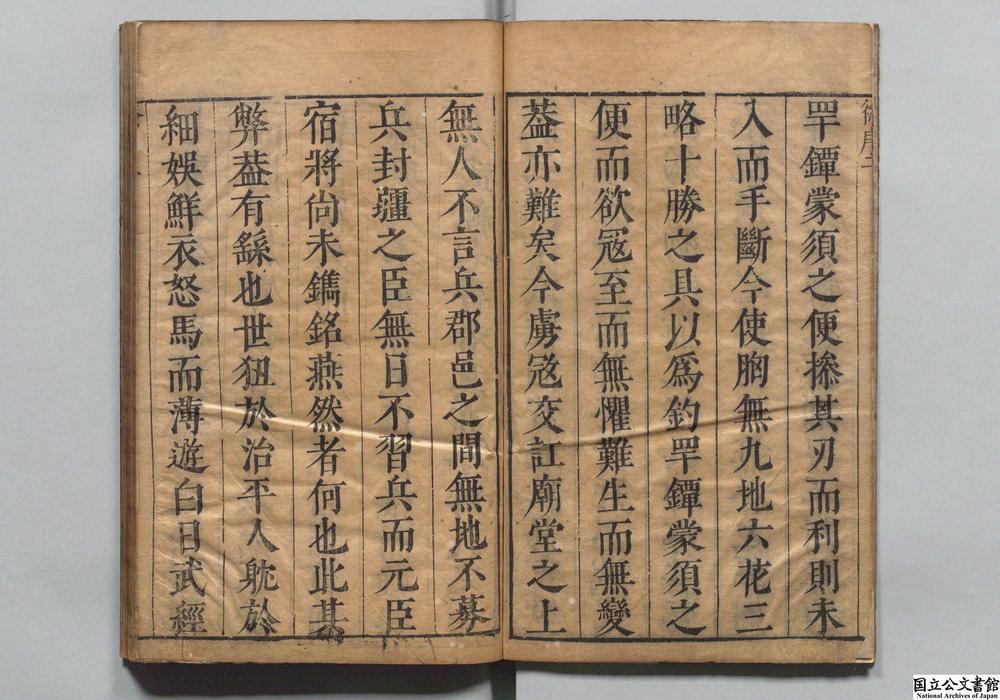 罕鐔蒙須之便搽其刃而利則未
入而手斷今使胸無九地六花三
略十勝之具以爲釣罕鐔蒙須之
便而欲冦至而無懼難生而無變
葢亦難矣今虜冦交訌廟堂之上
無人不言兵郡邑之間無地不募
兵封疆之臣無日不習兵而元臣
宿將尙未鐫銘燕然者何也此其
弊葢有繇也世狃於治平人躭於
細娛鮮衣怒馬而薄遊白日武經
国立公文書館
National Archives of Japan